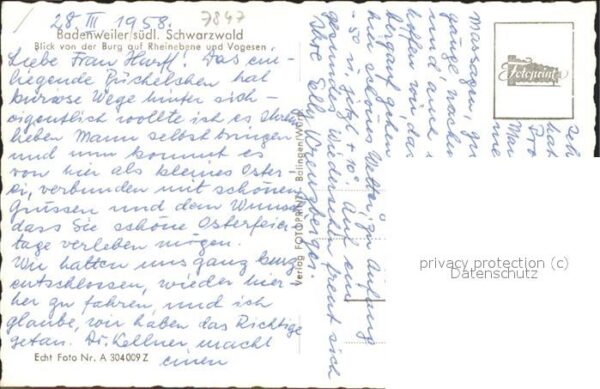 28 III 1958.
7847
Badenweiler südl. Schwarzwald
Blick von der Burg auf Rheinebene und Vogesen
Liebe Frau! Das ein-
liegende Büchelchen hat
kuriose Wege hinter sich –
eigentlich wollte ich es Ihrem
lieben Mann selbst bringen
und nun kommt es
von hier als kleines Oster-
ei, verbunden mit schönen
Grüssen und dem Wunsch
dass Sie schöne Osterfeier-
tage verleben mögen.
Wir hatten uns ganz kurz
entschlossen, wieder hier-
her zu fahren, und ich
glaube, wir haben das Richtige
getan. Dr. Kellner macht
einen
Echt Foto Nr. A 304009 Z
Verlag FOTOPRINT Balingen/Württ
Fotoprint
Massagen,
gänge
und
hoffen wir, das
bergauf gehen
kein schönes Wetter, zu Anfang
-5° u. jetzt +10°. Auf ein
gesundes Wiedersehn freut sich
Ihre
Ich
hat
Pro
Man
privacy protection (c)
Datenschutz